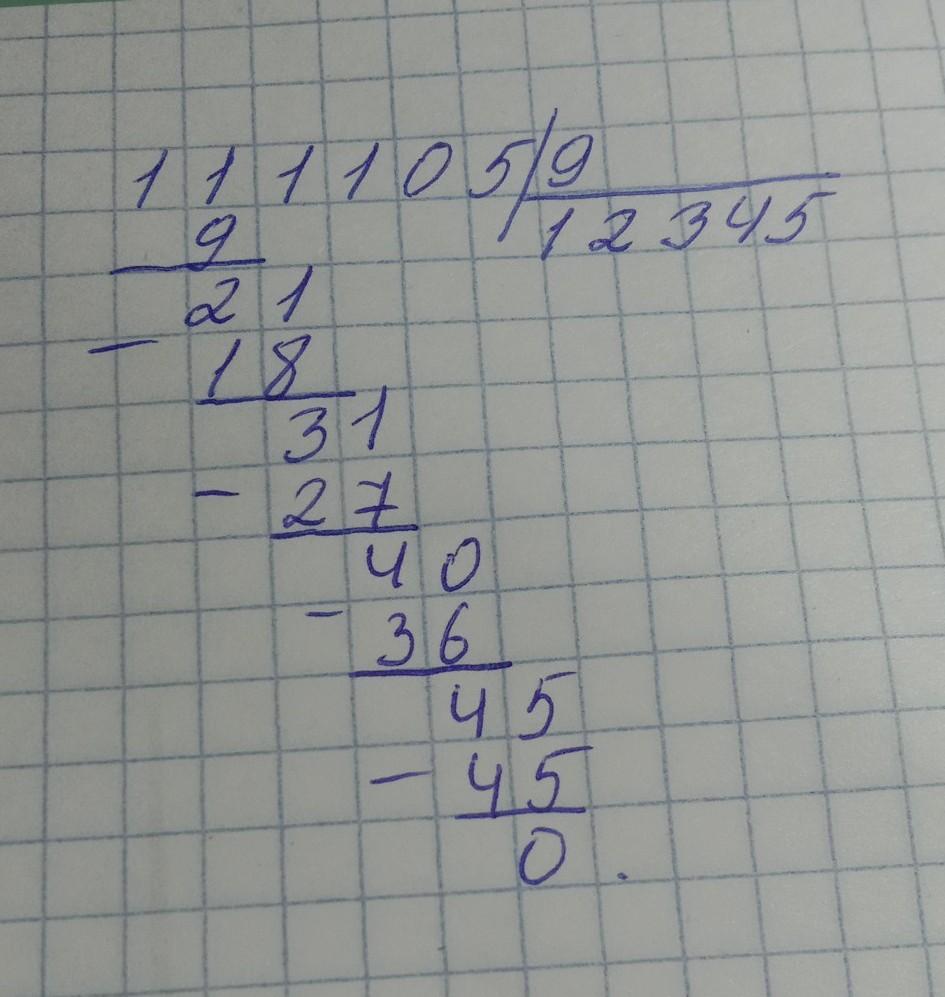 111105 9
9 12345
21
- 18
31
- 27
40
- 36
45
- 45
0.